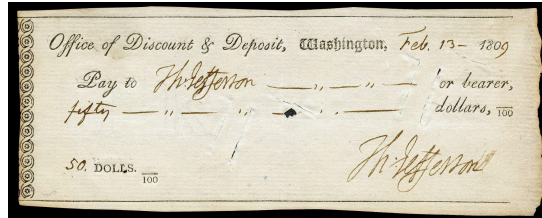 Office of Discount & Deposit, Washington, Feb. 13 - 1809
Pay to Th: Jefferson — „ — „ — or bearer,
fifty — „ — „ — . — dollars, /100
50. DOLLS. /100
Th: Jefferson